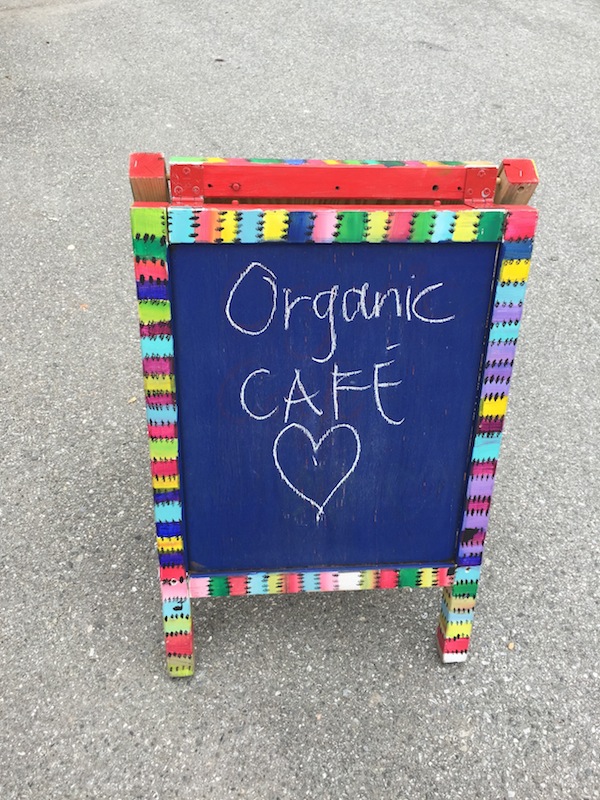 Organic
CAFÉ